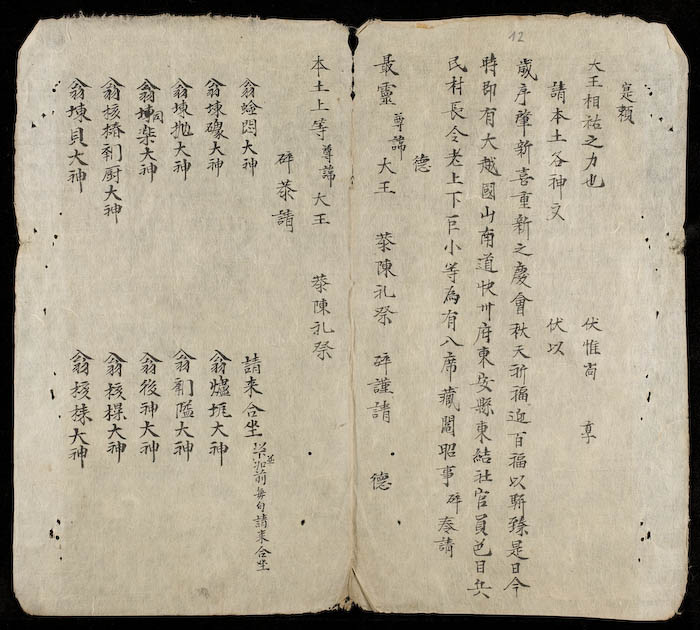 寔賴
大王相祐之力也 伏惟尚 享
請本土谷神文 伏以
歲序肇新喜重新之慶會秋天祈福迎百福以駢臻是日今
時即有大越國山南道快州府東安縣東結社官員色目兵
民村長令老上下巨小等為有八席藏鬮昭事 碎奉請
德
最靈尊謚大王 恭陳礼祭 碎謹請 德
本土上等尊謚大王 恭陳礼祭
碎恭請 請來合坐
翁 大神 翁爐堆大神
翁堜礞大神 翁 隘大神
翁堜拋大神 翁後神大神
翁 柴大神 翁核 大神
翁核樁 厨大神 翁核 大神
翁堜貝大神